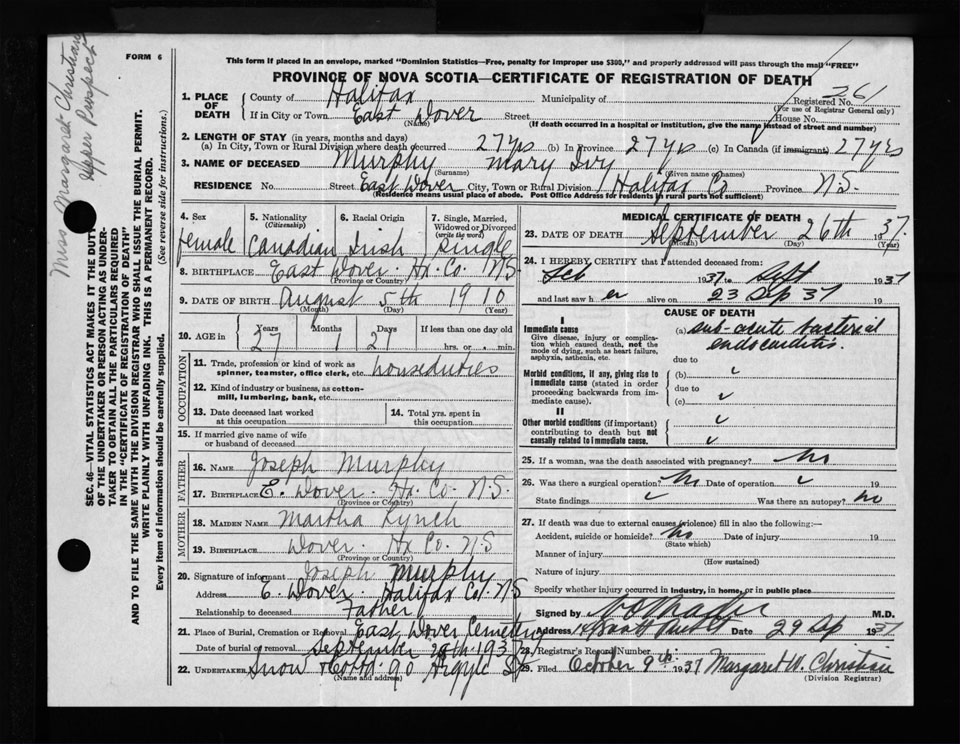 FORM 6
This form if placed in an envelope, marked "Dominion Statistics—Free, penalty for improper use $300," and properly addressed will pass through the mail "FREE"
PROVINCE OF NOVA SCOTIA—CERTIFICATE OF REGISTRATION OF DEATH
Miss Margaret Christian
Upper Prospect
SEC. 46—VITAL STATISTICS ACT MAKES IT THE DUTY
OF THE UNDERTAKER OR PERSON ACTING AS UNDER-
TAKER TO OBTAIN ALL THE PARTICULARS REQUIRED
IN THE "CERTIFICATE OF REGISTRATION OF DEATH"
AND TO FILE THE SAME WITH THE DIVISION REGISTRAR WHO SHALL ISSUE THE BURIAL PERMIT.
WRITE PLAINLY WITH UNFADING INK. THIS IS A PERMANENT RECORD.
Every item of information should be carefully supplied. (See reverse side for instructions.)
1. PLACE OF DEATH County of Halifax Municipality of Registered No. 261
(For use of Registrar General only)
If in City or Town East Dover Street House No.
(Name) (If death occurred in a hospital or institution, give the name instead of street and number)
2. LENGTH OF STAY (in years, months and days)
(a) In City, Town or Rural Division where death occurred 27 yrs (b) In Province 27 yrs (c) In Canada (if immigrant) 27 yrs
3. NAME OF DECEASED Murphy Mary Ivy
(Surname) (Given name or names)
RESIDENCE No. Street East Dover City, Town or Rural Division Halifax Co Province N.S.
(Residence means usual place of abode. Post Office Address for residents in rural parts not sufficient)
4. Sex 5. Nationality (Citizenship) 6. Racial Origin 7. Single, Married, Widowed or Divorced (write the word)
female Canadian Irish single
8. BIRTHPLACE East Dover Hx. Co. N.S
(Province or Country)
9. DATE OF BIRTH August 5th 1910
(Month) (Day) (Year)
10. AGE in Years Months Days If less than one day old
27 1 21 hrs. or min.
OCCUPATION
11. Trade, profession or kind of work as spinner, teamster, office clerk, etc. houseduties
12. Kind of industry or business, as cotton-mill, lumbering, bank, etc.
13. Date deceased last worked at this occupation 14. Total yrs. spent in this occupation
15. If married give name of wife or husband of deceased
FATHER
16. NAME Joseph Murphy
17. BIRTHPLACE E. Dover Hx. Co. N.S.
(Province or Country)
MOTHER
18. MAIDEN NAME Martha Lynch
19. BIRTHPLACE Dover Hx Co. N.S
(Province or Country)
20. Signature of informant Joseph Murphy
Address E. Dover Halifax Co. N.S
Relationship to deceased Father
21. Place of Burial, Cremation or Removal East Dover Cemetery
Date of burial or removal September 28th 1937
22. UNDERTAKER Snow & Co Ltd. 90 Argyle St.
(Name and address)
MEDICAL CERTIFICATE OF DEATH
23. DATE OF DEATH September 26th 1937
(Month) (Day) (Year)
24. I HEREBY CERTIFY that I attended deceased from:
Feb 1937 to Sept 1937
and last saw her alive on 23 Sep 37 19
CAUSE OF DEATH
I
Immediate cause (a) sub-acute bacterial
Give disease, injury or complication which caused death, not the mode of dying, such as heart failure, asphyxia, asthenia, etc. endocarditis.
due to
Morbid conditions, if any, giving rise to immediate cause (stated in order proceeding backwards from immediate cause). (b)
due to
(c)
II
Other morbid conditions (if important) contributing to death but not causally related to immediate cause.
25. If a woman, was the death associated with pregnancy? No
26. Was there a surgical operation? No Date of operation 19
State findings Was there an autopsy? No
27. If death was due to external causes (violence) fill in also the following:—
Accident, suicide or homicide? No Date of injury 19
(State which)
Manner of injury
(How sustained)
Nature of injury
Specify whether injury occurred in industry, in home, or in public place
Signed by M.D.
Address Date 29 Sep 1937
28. Registrar's Record Number
29. Filed October 9th 1937 Margaret W. Christian
(Division Registrar)